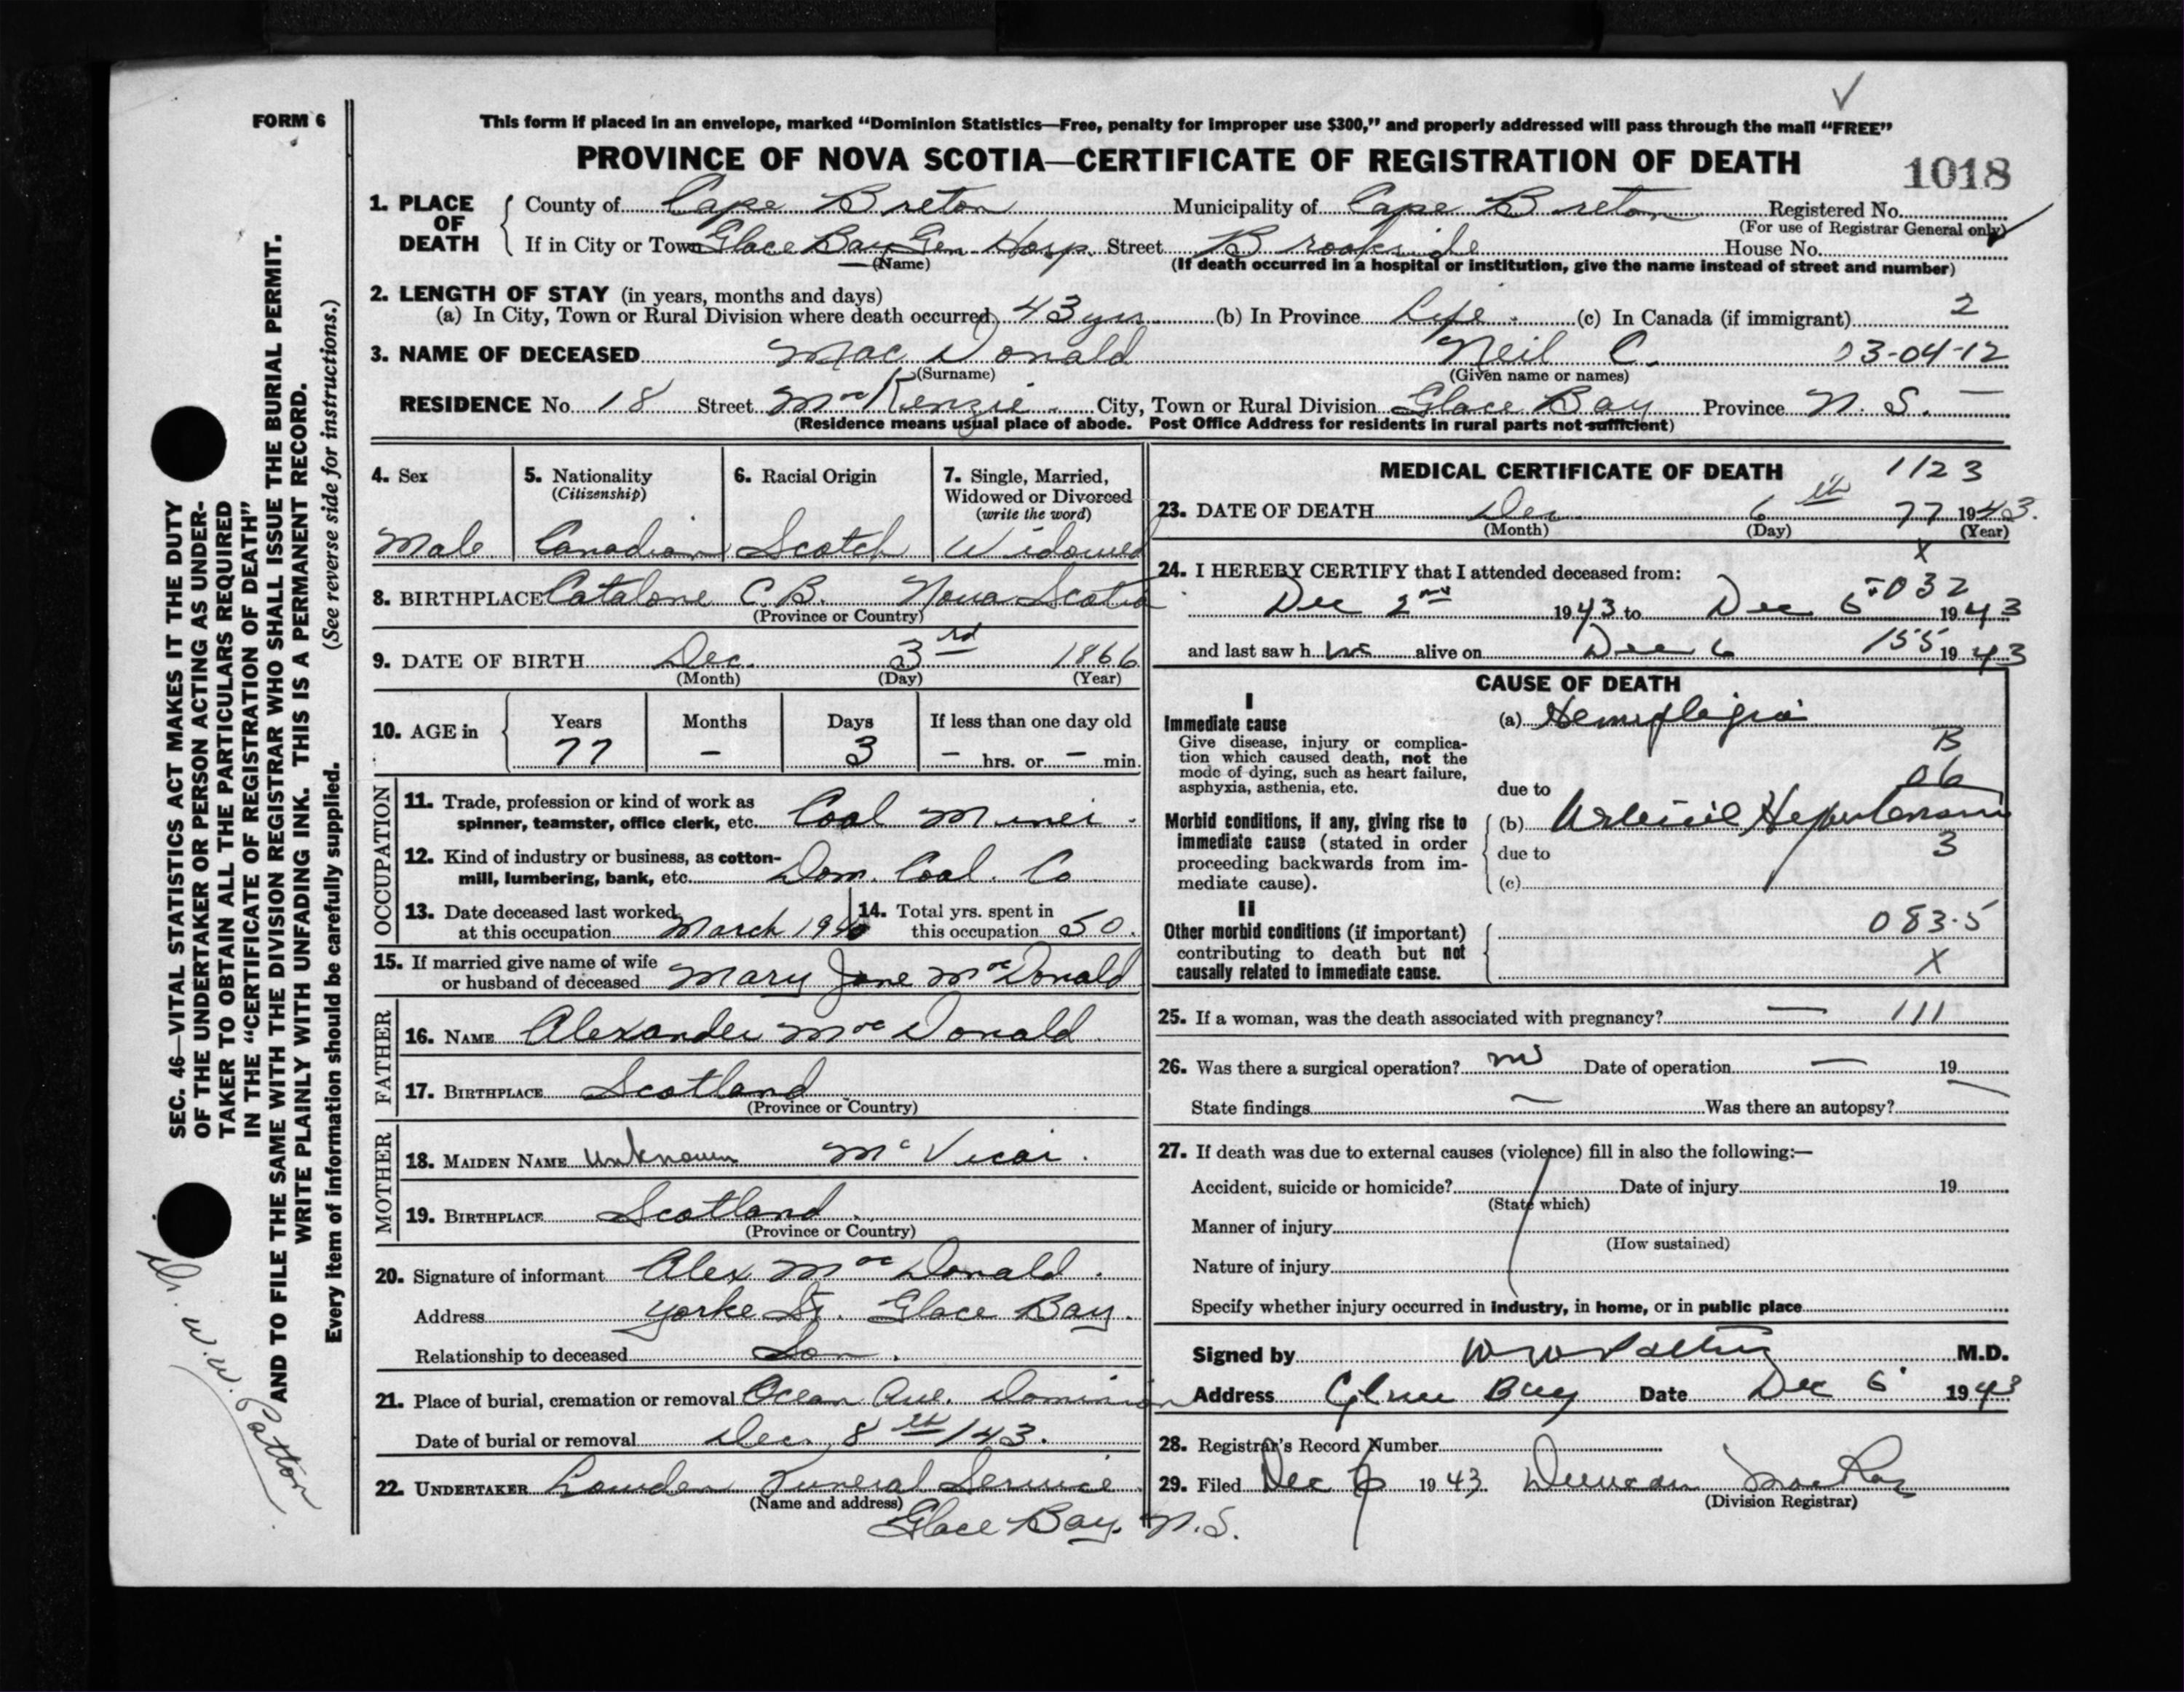 FORM 6
This form if placed in an envelope, marked “Dominion Statistics—Free, penalty for improper use $300,” and properly addressed will pass through the mail “FREE”
PROVINCE OF NOVA SCOTIA—CERTIFICATE OF REGISTRATION OF DEATH
1018
1. PLACE OF DEATH
County of Cape Breton Municipality of Cape Breton Registered No.
(For use of Registrar General only)
If in City or Town Glace Bay Gen. Hosp. Street Brookside House No.
(Name) (If death occurred in a hospital or institution, give the name instead of street and number)
2. LENGTH OF STAY (in years, months and days)
(a) In City, Town or Rural Division where death occurred 43 yrs (b) In Province Life. (c) In Canada (if immigrant) 2
3. NAME OF DECEASED Mac Donald Neil C. 03-04-12
(Surname) (Given name or names)
RESIDENCE No. 18 Street McKenzie. City, Town or Rural Division Glace Bay Province N. S. —
(Residence means usual place of abode. Post Office Address for residents in rural parts not sufficient)
4. Sex
Male
5. Nationality
(Citizenship)
Canadian
6. Racial Origin
Scotch
7. Single, Married,
Widowed or Divorced
(write the word)
Widowed
8. BIRTHPLACE Catalone C.B. Nova Scotia
(Province or Country)
9. DATE OF BIRTH Dec. 3rd 1866
(Month) (Day) (Year)
10. AGE in
Years Months Days If less than one day old
77 – 3 – hrs. or – min.
OCCUPATION
11. Trade, profession or kind of work as
spinner, teamster, office clerk, etc. Coal Miner.
12. Kind of industry or business, as cotton-
mill, lumbering, bank, etc. Dom. Coal. Co
13. Date deceased last worked
at this occupation March 1940
14. Total yrs. spent in
this occupation 50.
15. If married give name of wife
or husband of deceased Mary Jane MacDonald
FATHER
16. NAME Alexander Mac Donald
17. BIRTHPLACE Scotland
(Province or Country)
MOTHER
18. MAIDEN NAME Unknown Mc Vicar.
19. BIRTHPLACE Scotland.
(Province or Country)
20. Signature of informant Alex Mac Donald.
Address Yorke St. Glace Bay.
Relationship to deceased Son.
21. Place of burial, cremation or removal Ocean Ave. Dominion
Date of burial or removal Dec. 8th/43.
22. UNDERTAKER Funeral Service
(Name and address)
Glace Bay. N.S.
MEDICAL CERTIFICATE OF DEATH 1123
23. DATE OF DEATH Dec 6th 77 1943.
(Month) (Day) (Year)
X
24. I HEREBY CERTIFY that I attended deceased from:
032
Dec 2nd 1943 to Dec 6 1943
and last saw h alive on Dec 6 155 1943
CAUSE OF DEATH
I
Immediate cause
Give disease, injury or complica-
tion which caused death, not the
mode of dying, such as heart failure,
asphyxia, asthenia, etc.
(a) Hemiplegia
B
06
due to
Morbid conditions, if any, giving rise to
immediate cause (stated in order
proceeding backwards from im-
mediate cause).
(b) Arterial Hypertension
due to 3
(c)
II
Other morbid conditions (if important)
contributing to death but not
causally related to immediate cause.
083.5
X
25. If a woman, was the death associated with pregnancy? — 111
26. Was there a surgical operation? no Date of operation — 19
State findings — Was there an autopsy?
27. If death was due to external causes (violence) fill in also the following:—
Accident, suicide or homicide? Date of injury 19
(State which)
Manner of injury
(How sustained)
Nature of injury
Specify whether injury occurred in industry, in home, or in public place
Signed by W W Patton M.D.
Address Glace Bay Date Dec 6 1943
28. Registrar's Record Number
29. Filed Dec 1943 Duncan
(Division Registrar)
SEC. 46—VITAL STATISTICS ACT MAKES IT THE DUTY
OF THE UNDERTAKER OR PERSON ACTING AS UNDER-
TAKER TO OBTAIN ALL THE PARTICULARS REQUIRED
IN THE “CERTIFICATE OF REGISTRATION OF DEATH”
AND TO FILE THE SAME WITH THE DIVISION REGISTRAR WHO SHALL ISSUE THE BURIAL PERMIT.
WRITE PLAINLY WITH UNFADING INK. THIS IS A PERMANENT RECORD.
Every item of information should be carefully supplied. (See reverse side for instructions.)
W.W. Patton